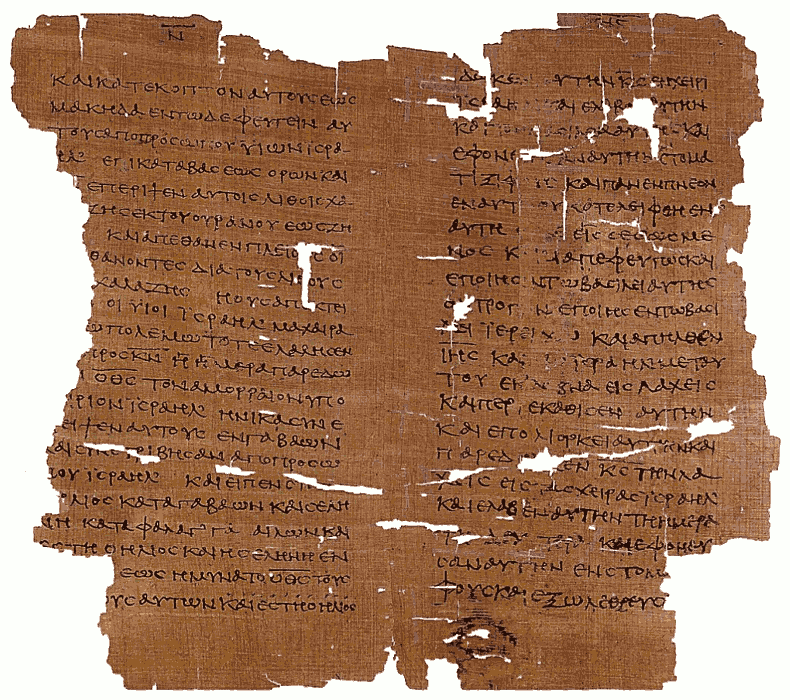 Ν
ΚΑΙΚΑΤΕΚΟΠΤΟΝΑΥΤΟΥϹΕΩϹ
ΜΑΚΗΔΑΕΝΤΩΔΕΦΕΥΓΕΙΝΑΥ
ΤΟΥϹΑΠΟΠΡΟϹΩΠΟΥΥΙΩΝΙϹΡΑ
ΗΛ ΕΠΙΚΑΤΑΒΑϹΕΩϹΟΡΩΝΚΑΙ
ΕΠΕΡΙΨΕΝΑΥΤΟΙϹΛΙΘΟΙϹΧΑ
ΖΗϹΕΚΤΟΥΟΥΡΑΝΟΥΕΩϹΖΗ
ΚΑΙΑΠΕΘΑΝΕΝΠΛΕΙΟ ϹΟΙ
ΘΑΝΟΝΤΕϹΔΙΑΤΟΥϹΛΙΘΟΥϹ
ΧΑΛΑΖΗϹ ΗΟΥϹΑΠ ΚΤΕΙ
ΟΙΥΙΟΙΙϹΡΑΗΛΜΑΧΑΙΡΑ
ΩΠΟΛΕΜΩΤΟΤΕΕΛΑΛΗϹΕΝ
ΠΡΟϹΚΝ ΗΗΜΕΡΑΠΑΡΕΔΩ
ΟΘϹΤΟΝΑΜΟΡΡΑΙΟΝΥΠΟ
ΡΙΟΝΙϹΡΑΗΛΗΝΙΚΑϹΥΝΕ
ΕΙΨΕΝΑΥΤΟΥϹΕΝΓΑΒΑΩΝΙ
ΑΙϹΥΝΕΤΡΙΒΗϹΑΝΑΠΟΠΡΟϹΩ
ΟΥΙϹΡΑΗΛ ΚΑΙΕΙΠΕΝ
ΗΛΙΟϹΚΑΤΑΓΑΒΑΩΝΚΑΙϹΕΛΗ
ΝΗΚΑΤΑΦΑΛΑΓΓΑΑΙΛΩΝΚΑΙ
ΕϹΤΗΟΗΛΙΟϹΚΑΙΗϹΕΛΗΝΗΕΝ
ΕΩϹΗΜΥΝΑΤΟΟΘϹΤΟΥϹ
ΟΥϹΑΥΤΩΝΚΑΙΕϹΤΗΟΗΛΙΟϹ
ΔΩΚΕΝ ΑΥΤΗΝΚϹΕΝΧΕΙΡΙ
ΙϹΡΑΗΛ ΚΑΙΕΛΑΒΟΝΑΥΤΗΝ
ΕΦΟΝΕΥϹΑΝΑΥΤΗΝϹΤΟΜΑ
ΤΙΞΙΦΟΥϹΚΑΙΠΑΝΕΝΠΝΕΟΝ
ΕΝΑΥΤ ΟΥΚΑΤΕΛΕΙΦΘΗΕΝ
ΑΥΤΗ ΕΙϹϹΕϹΩϹΜΕ
ΝΟϹ Κ ΔΙΑΠΕΦΕΥΓΩϹΚΑΙ
ΕΠΟΙΗϹ ΝΤΩΒΑϹΙΛΕΙΑΥΤΗϹ
Ο ΤΡΟΠ ΝΕΠΟΙΗϹΕΝΤΩΒΑϹΙ
ΛΕΙΙΕΡΕΙΧΩ ΚΑΙΑΠΗΛΘΕΝ
ΙΗϹΚΑΙ ΙϹΡΑΗΛΜΕΤΑΥ
ΤΟΥΕΚΛΕΒΝΑΕΙϹΛΑΧΕΙϹ
ΚΑΙΠΕΡΙΕΚΑΘΙϹΕΝΑΥΤΗΝ
ΚΑΙΕΠΟΛΙΟΡΚΕΙΑΥΤΗΝΚΑΙ
ΠΑΡΕΔ ΚΕΝΚϹΤΗΝΛΑ
ΧΕΙϹΕΙϹΤΑϹΧΕΙΡΑϹΙϹΡΑΗΛ
ΚΑΙΕΛΑΒΕΝΑΥΤΗΝΤΗΗΜΕΡΑ
ΚΑΙΕΦΟΝΕΥ
ϹΑΝΑΥΤΗΝΕΝϹΤΟΜΑ
ΦΟΥϹΚΑΙΕΞΩΛΕΘΡΕΥϹ